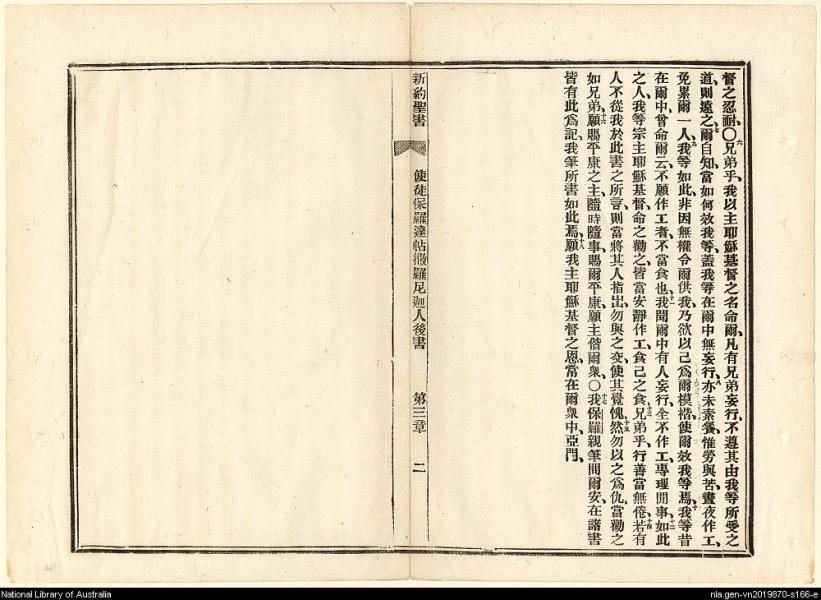 督之忍耐、○六兄弟乎、我以主耶穌基督之名命爾、凡有兄弟妄行、不遵其由我等所受之
道、則遠之、七爾自知當如何效我等、蓋我等在爾中無妄行、八亦未素餐、惟勞與苦、晝夜作工、
免累爾一人、九我等如此、非因無權令爾供我、乃欲以己爲爾模楷、使爾效我等焉、十我等昔
在爾中、曾命爾云、不願作工者、不當食也、十一我聞爾中有人妄行、全不作工、專理閒事、十二如此
之人、我等宗主耶穌基督、命之勸之、皆當安靜作工、食己之食、十三兄弟乎、行善當無倦、十四若有
人不從我於此書之所言、則當將其人指出、勿與之交、使其覺愧、十五然勿以之爲仇、當勸之
如兄弟、十六願賜平康之主、隨時隨事、賜爾平康、願主偕爾衆、○十七我保羅親筆問爾安、在諸書
皆有此爲記、我筆所書如此焉、十八願我主耶穌基督之恩、常在爾衆中、亞門、
新約聖書
使徒保羅達帖撒羅尼迦人後書
第三章
二
National Library of Australia
nla.gen-vn2019870-s166-e